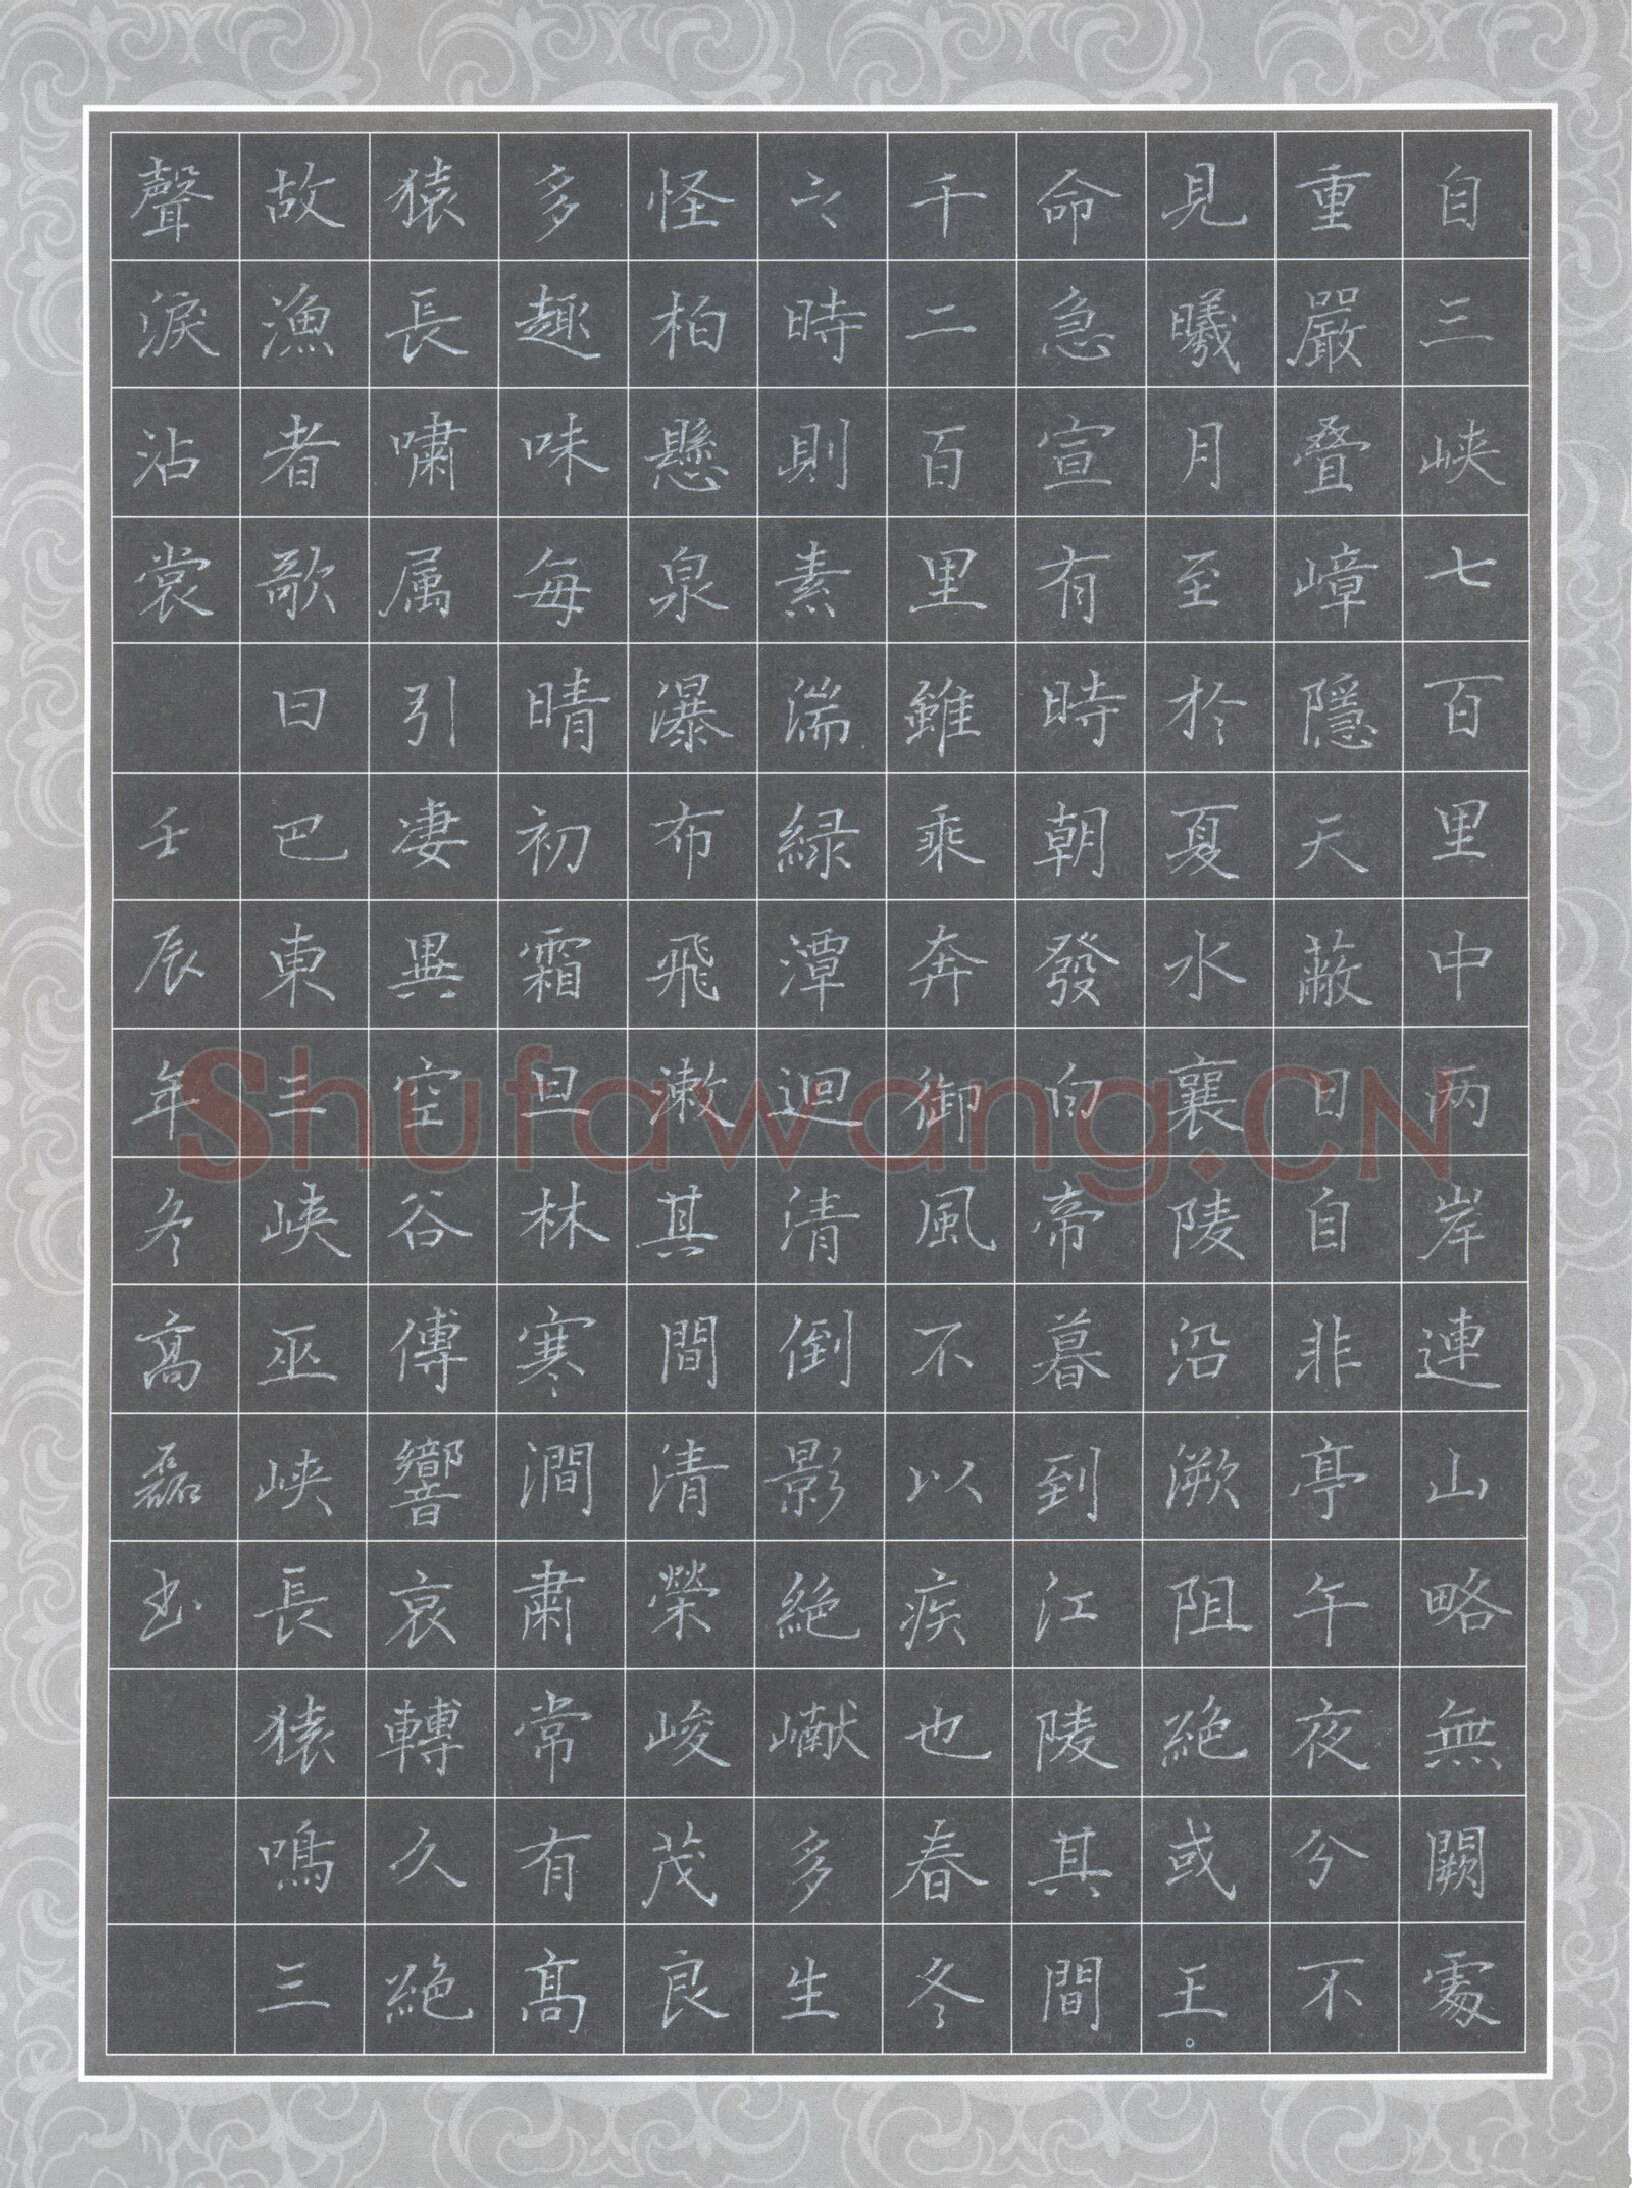 自三峡七百里中两岸連山略無闕處
重嚴疊嶂隱天蔽日自非亭午夜分不
見曦月至於夏水襄陵沿泝阻絶或王
命急宣有時朝發白帝暮到江陵其間
千二百里雖乘奔御風不以疾也春冬
之時則素湍緑潭迴清倒影絶巘多生
怪柏懸泉瀑布飛漱其間清榮峻茂良
多趣味每晴初霜旦林寒澗肅常有高
猿長嘯属引淒異空谷傳響哀轉久絶
故漁者歌曰巴東三峡巫峡長猿鳴三
聲淚沾裳 壬辰年冬高磊书
Shufawang.CN